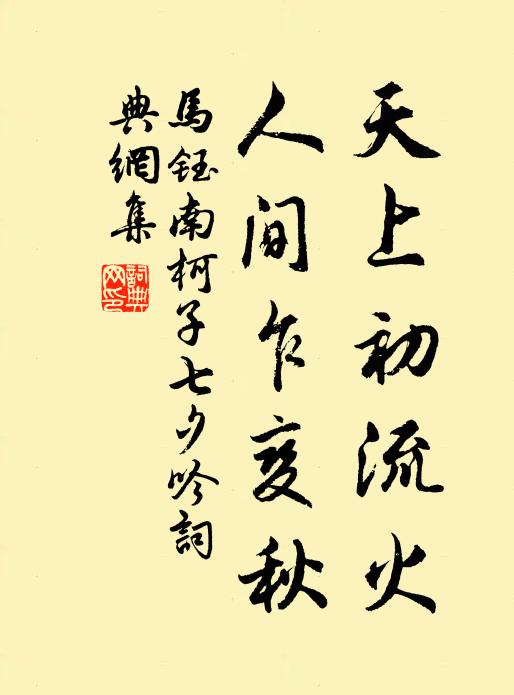 天上初流火
人间乍变秋
馬鈺南柯子七夕吟詞
典網集
詞典網印